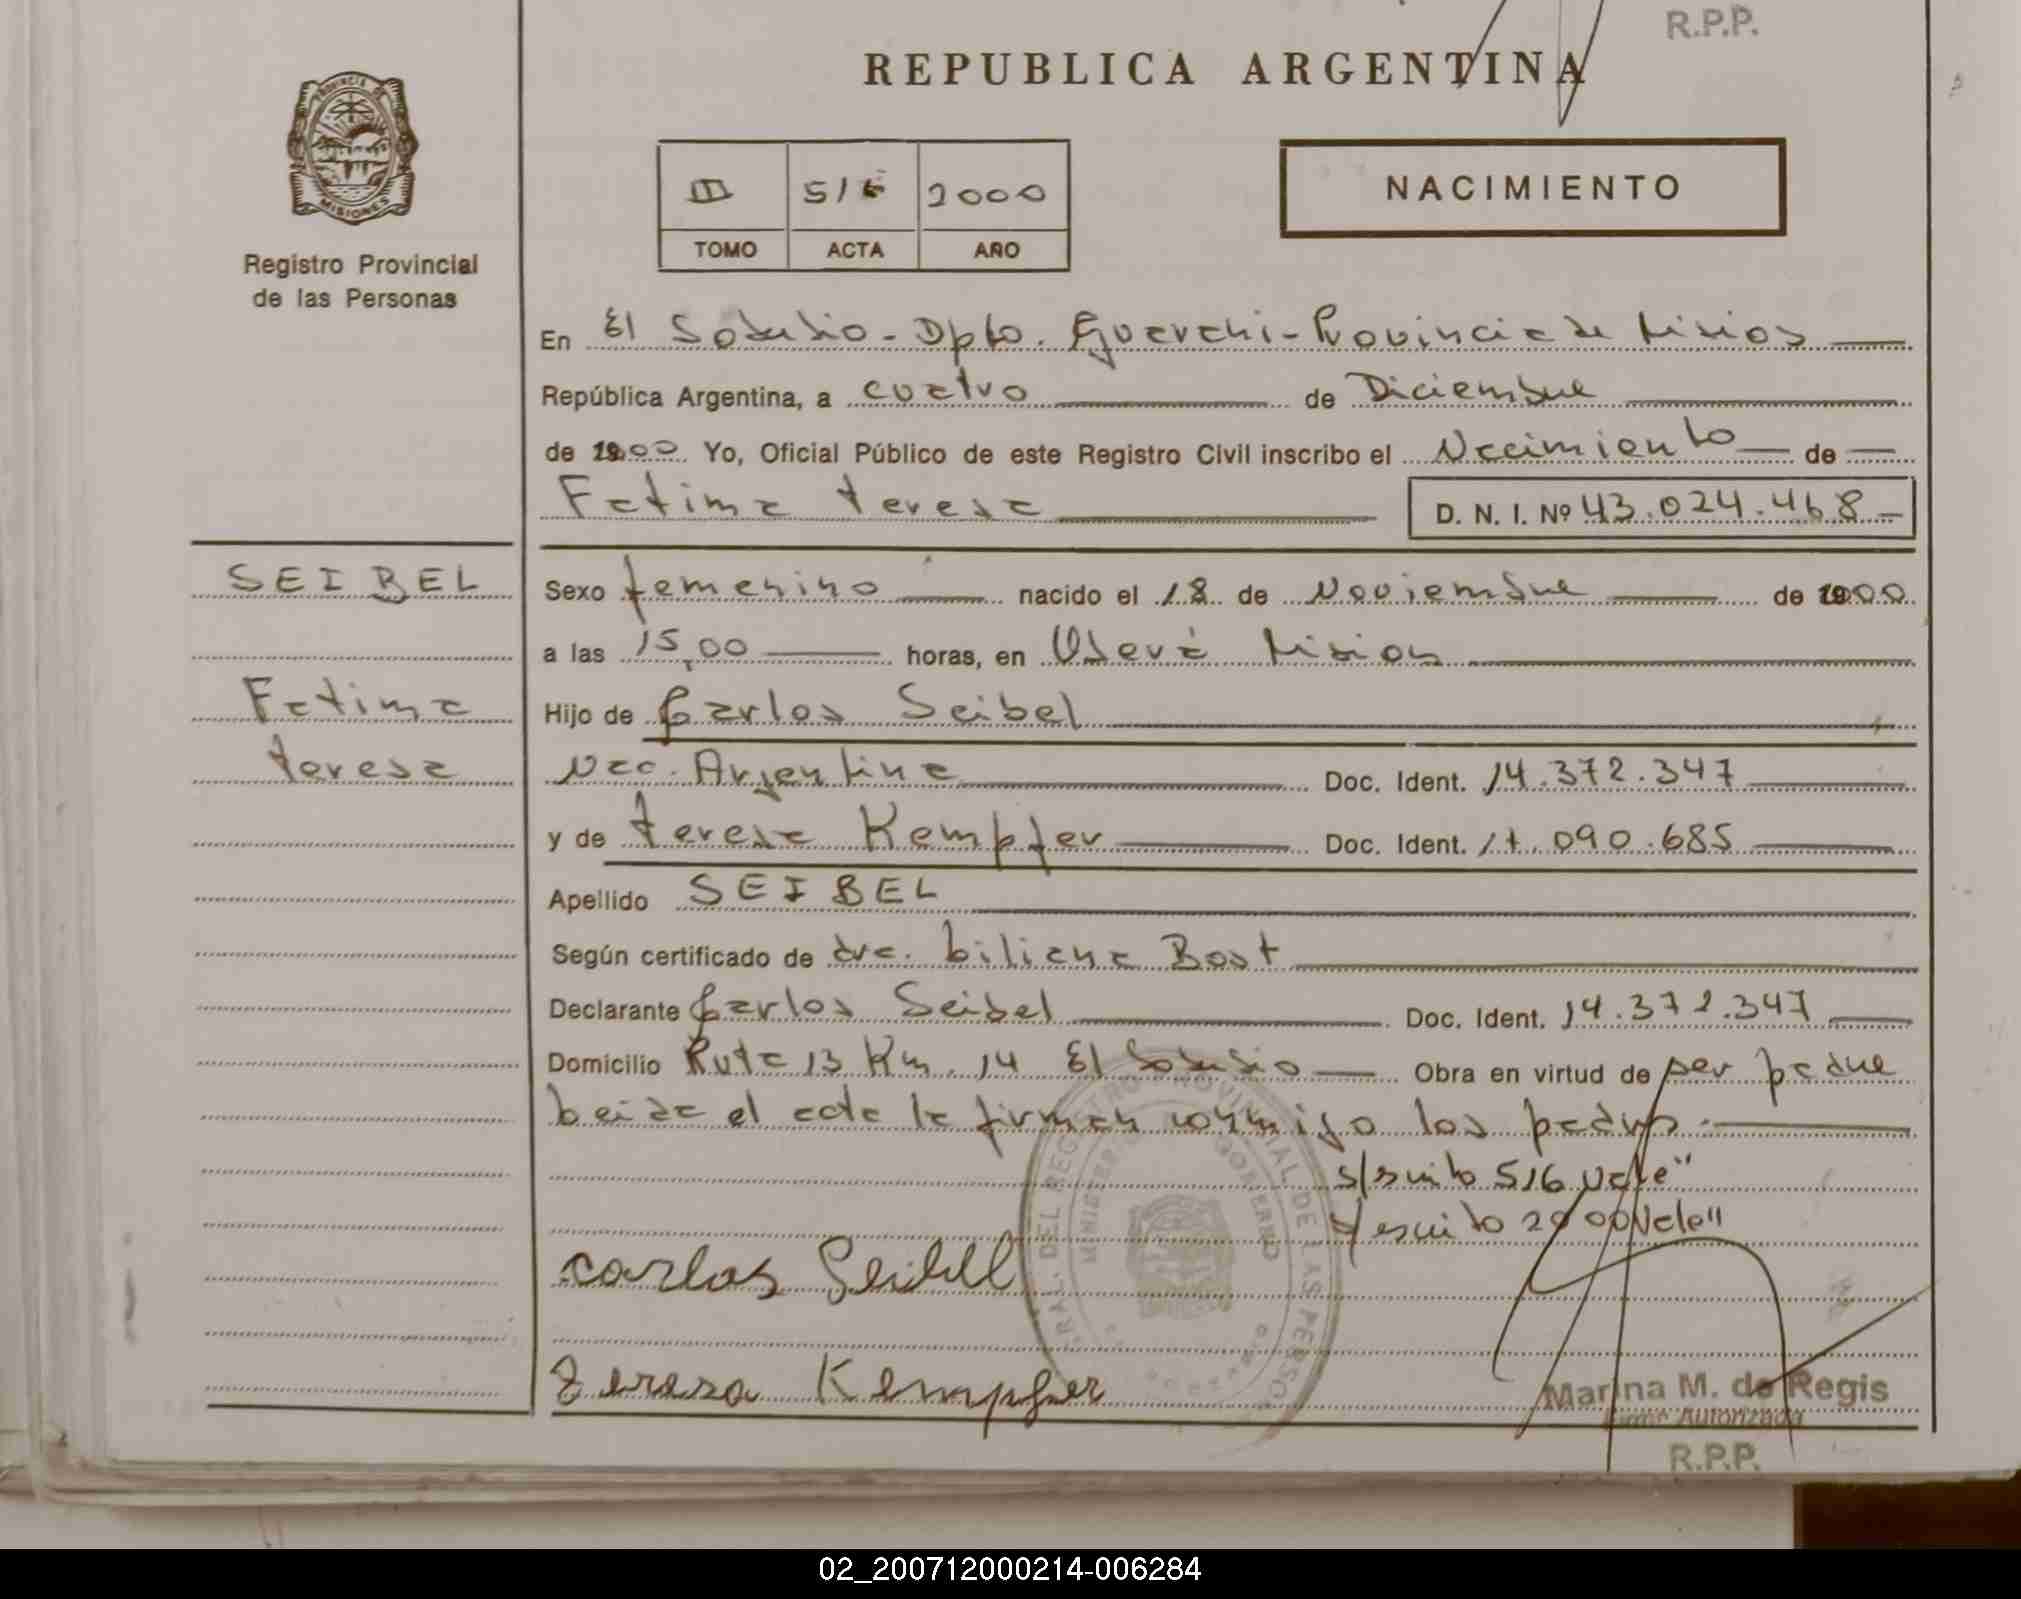 R.P.P.
REPUBLICA ARGENTINA
PROVINCIA DE
MISIONES
II 516 2000
TOMO ACTA AÑO
NACIMIENTO
Registro Provincial
de las Personas
En El Soberbio - Dpto. Guarani - Provincia de Misiones
República Argentina, a cuatro de Diciembre
de 2000 Yo, Oficial Público de este Registro Civil inscribo el Nacimiento de
Fatima teresa D. N. I. Nº 43.024.468
SEIBEL
Fatima
teresa
Sexo femenino nacido el 18 de Noviembre de 2000
a las 15,00 horas, en Oberá Misiones
Hijo de Carlos Seibel
Nac. Argentina Doc. Ident. 14.372.347
y de teresa Kempfer Doc. Ident. 17.090.685
Apellido SEIBEL
Según certificado de dra. biliana Bost
Declarante Carlos Seibel Doc. Ident. 14.372.347
Domicilio Ruta 13 Km. 14 El Soberbio Obra en virtud de ser padre
leida el acta la firman conmigo los padres.
s/escrito 516 Vale"
s/escrito 2000 Vale"
Carlos Seibell
Teresa Kempfer
Marina M. de Regis
Firma Autorizada
R.P.P.
02_200712000214-006284